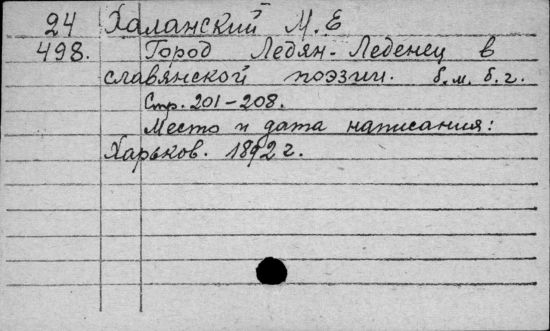 24 Халанский М. Е
498. Город Ледян-Леденец в
славянской поэзии. б.м. б.г.
Стр. 201-208.
Место и дата написания:
Харьков. 1892 г.